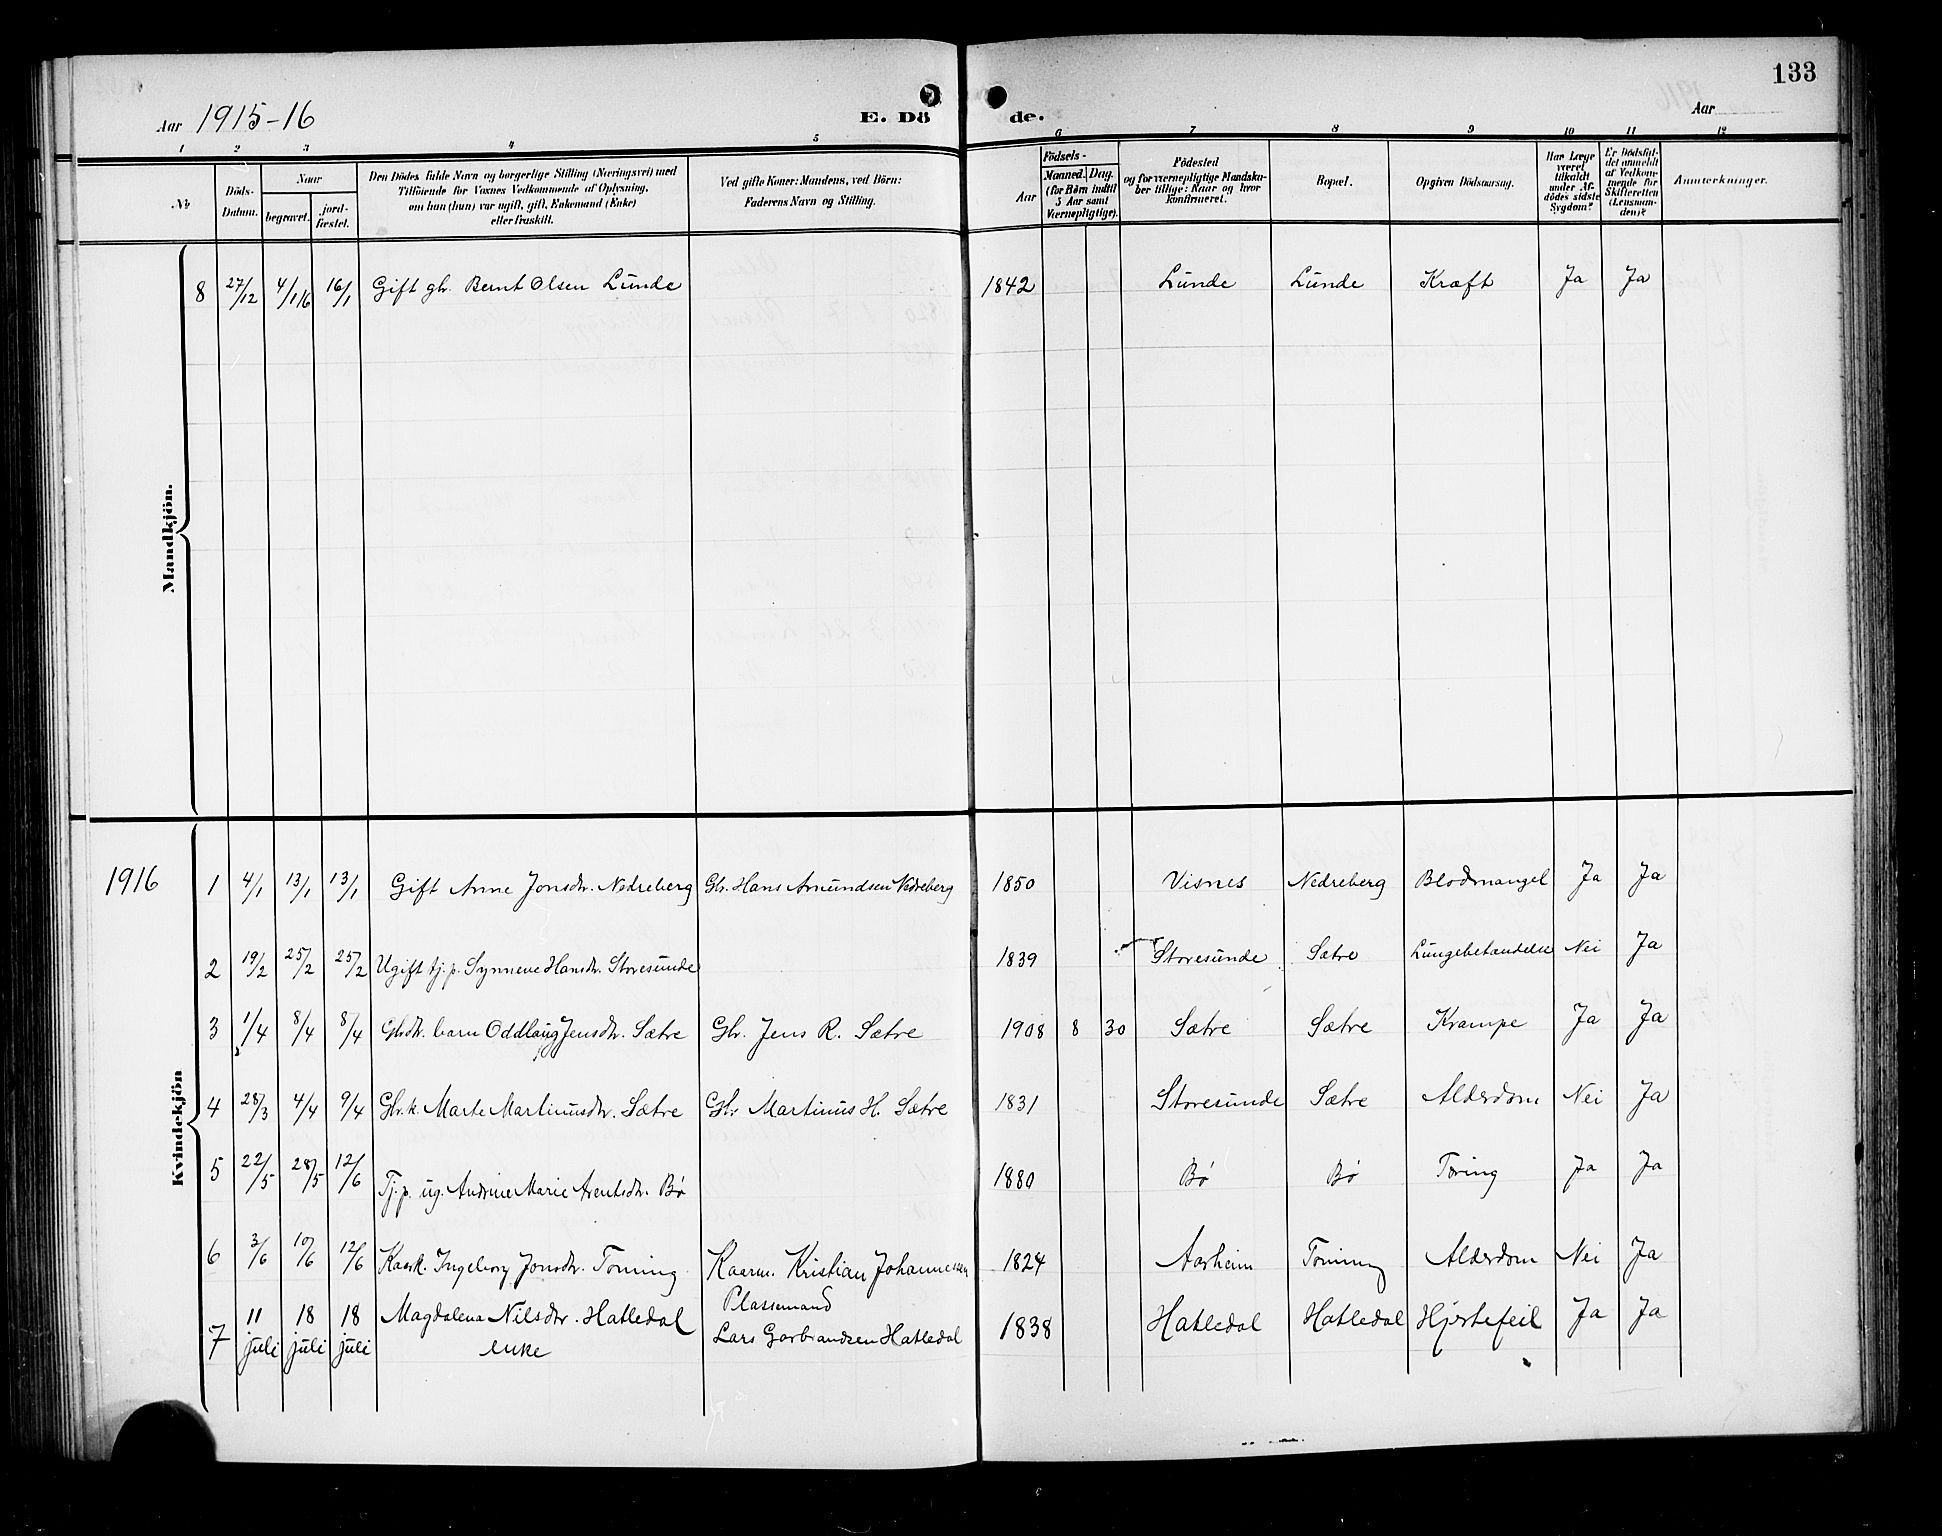 133
Aar 1915-16
E. Döde.
Aar
1 2 3 4 5 6 7 8 9 10 11 12
No
Döds-Datum.
Naar
begravet.
jordfæstet.
Den Dödes fulde Navn og borgerlige Stilling (Næringsvei) med
Tilföiende for Voxnes Vedkommende af Oplysning,
om han (hun) var ugift, gift, Enkemand (Enke)
eller fraskilt.
Ved gifte Koner: Mandens, ved Börn:
Faderens Navn og Stilling.
Födsels-
Aar
Maaned. Dag.
(for Börn indtil
5 Aar samt
Værnepligtige).
Födested
og for værnepligtige Mandskaber tillige: Naar og hvor
konfirmeret.
Bopæl.
Opgiven Dödsaarsag.
Har Læge
været
tilkaldt
under Afdödes sidste
Sygdom?
Er Dödsfaldet anmeldt
af Vedkommende for
Skifteretten
(Lensmanden)?
Anmærkninger.
Mandkjön.
8 27/12 4/1 16 16/1 Gift gbr. Bernt Olsen Lunde 1842 Lunde Lunde Kræft Ja Ja
Kvindekjön
1916 1 4/1 13/1 13/1 Gift Anne Jonsdtr. Nedreberg Gbr. Hans Amundsen Nedreberg 1850 Visnes Nedreberg Blodmangel Ja Ja
2 19/2 25/2 25/2 Ugift tj.p. Synneve Hansdtr. Storesunde 1839 Storesunde Sætre Lungebetændelse Nei Ja
3 1/4 8/4 8/4 Gbrdtr. barn Oddlaug Jensdtr. Sætre Gbr. Jens R. Sætre 1908 8 30 Sætre Sætre Krampe Ja Ja
4 28/3 4/4 9/4 Gbr.k. Marte Martinusdtr. Sætre Gbr. Martinus H. Sætre 1831 Storesunde Sætre Alderdom Nei Ja
5 22/5 28/5 12/6 Tj.p. ug. Andrine Marie Arentsdtr. Bø 1880 Bø Bø Tæring Ja Ja
6 3/6 10/6 12/6 Kaark. Ingeborg Jonsdtr. Tonning Kaarm. Kristian Johannessen 1824 Aarheim Tonning Alderdom Nei Ja
7 11 juli 18 juli 18 juli Magdalena Nilsdtr. Hatledal
enke
Plassemand
Lars Garbrandsen Hatledal 1838 Hatledal Hatledal Hjertefeil Ja Ja